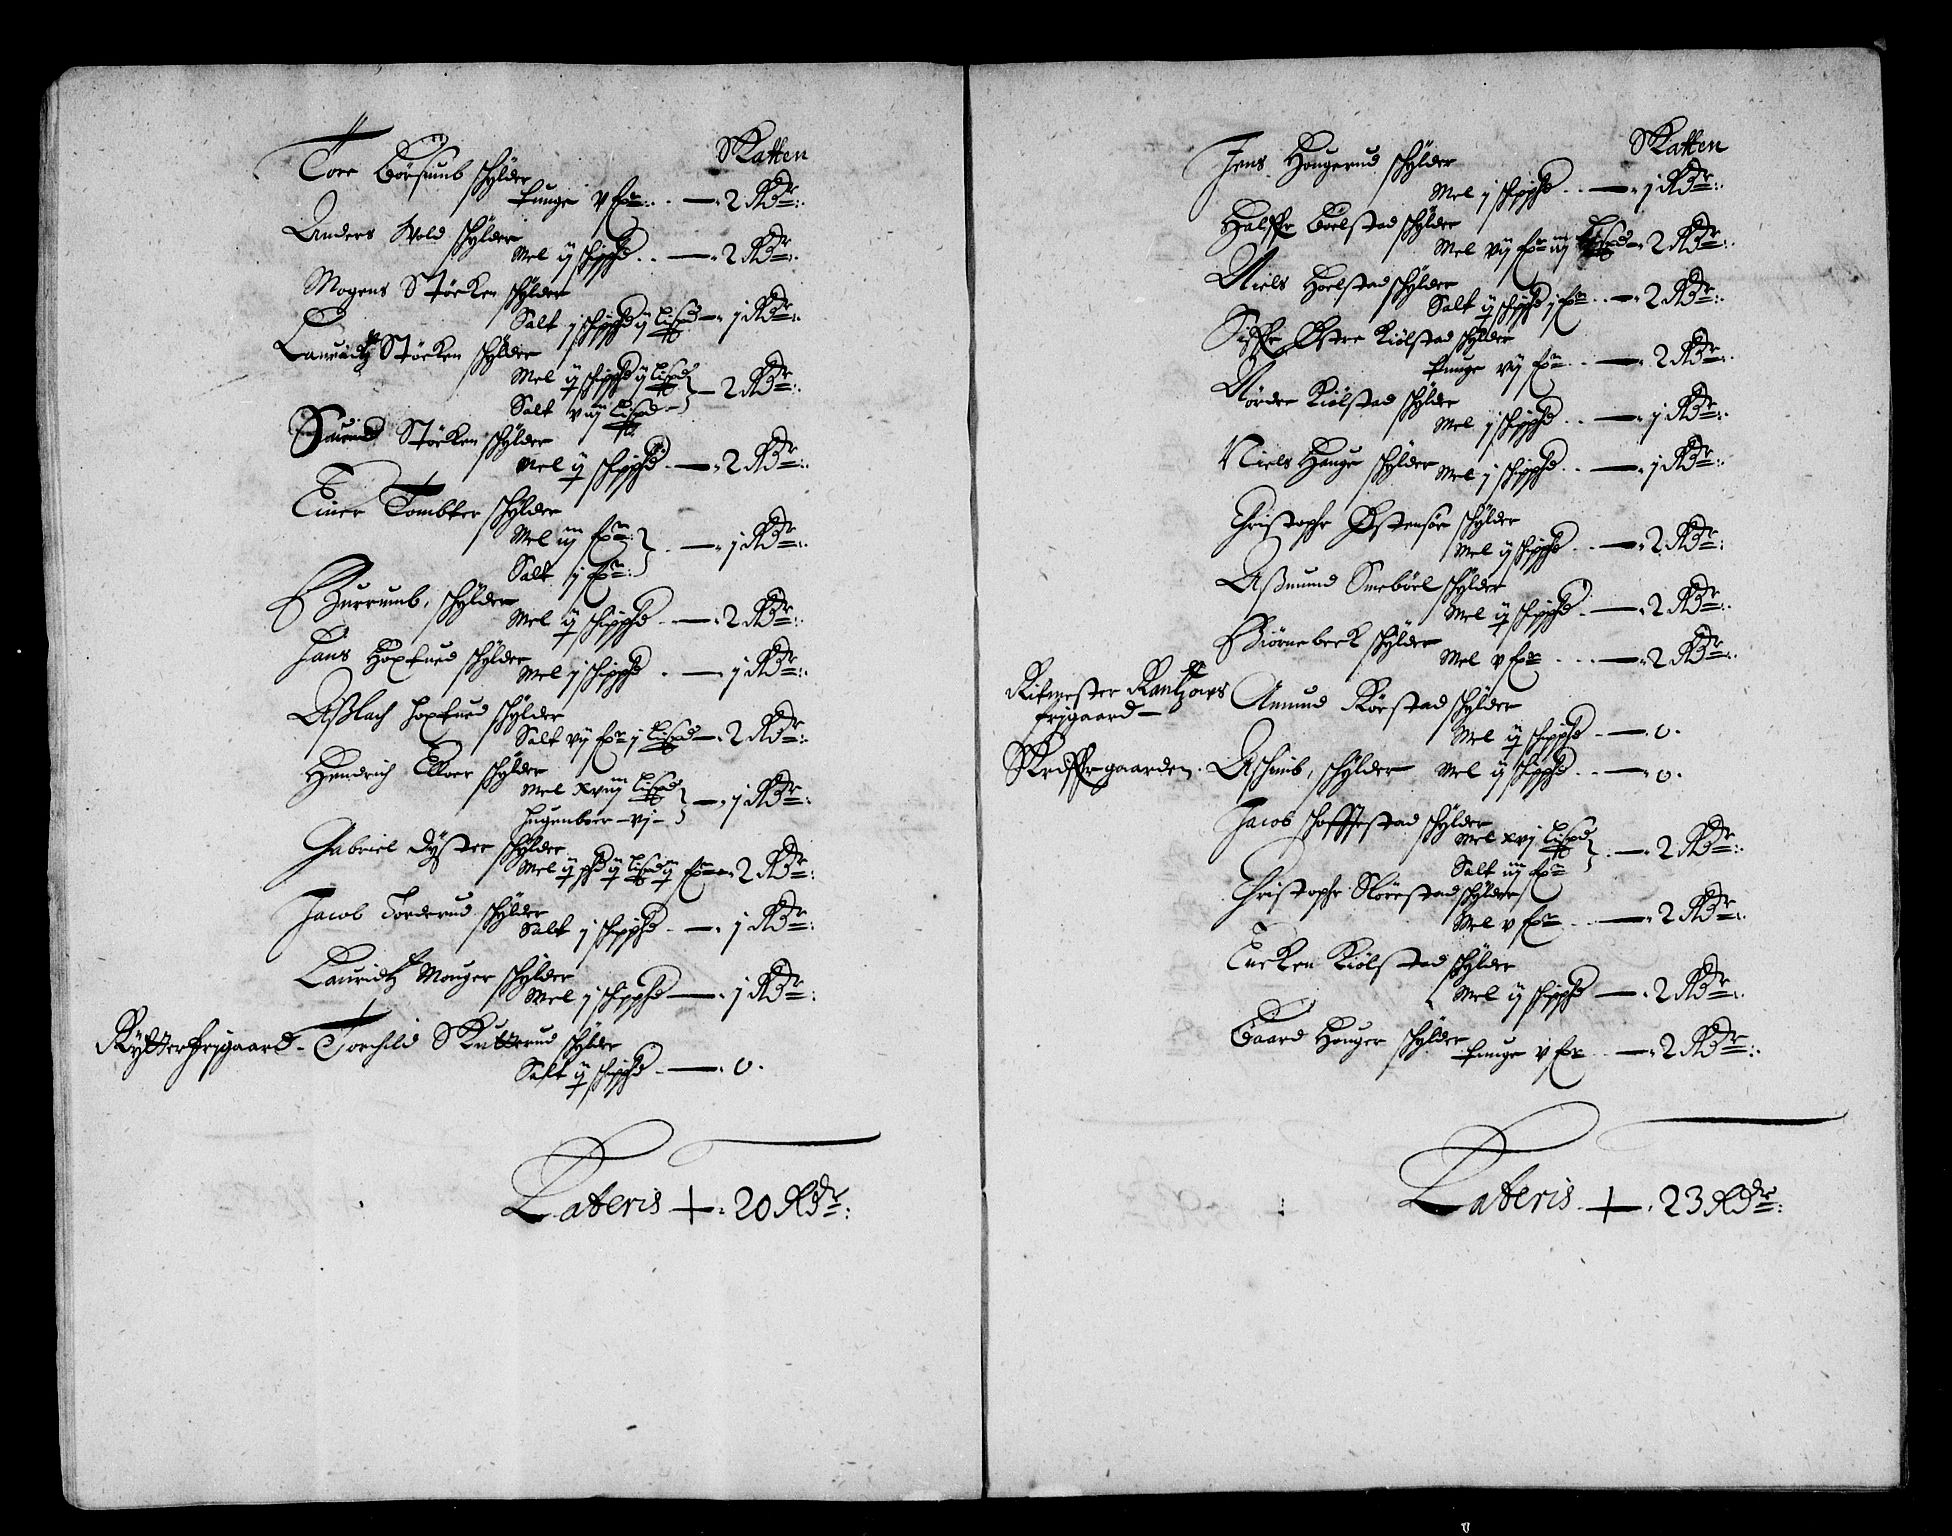 Skatten
Tore Børsumb schylder
Punge v fr: . . — 2 Rdr:
Anders Wold schylder
Mel ij schippd . . — 2 Rdr:
Mogens Støcken schylder
Salt j schippd ij Lispd — j Rdr:
Lauridtz Støcken schylder
Mel ij schippd ij Lispd
Salt viij Lispd — 2 Rdr:
Støcken schylder
Mel ij schippd — 2 Rdr:
Einer Tombter schylder
Mel iij fr:
Salt j fr: — j Rdr:
Burrumb, schylder
Mel ij schippd — 2 Rdr:
Hans Hoxfued schylder
Mel j schippd . — j Rdr:
Aßlach Hoxfued schylder
Salt vij fr j Lispd — 2 Rdr:
Hendrich schylder
Mel xviij Lispd
Hugenboer — vj — j Rdr:
Gabriel Dyster schylder
Mel ij schpd ij Lispd ij fr — 2 Rdr:
Jacob Torderud schylder
Salt j schippd — j Rdr:
Lauridtz Monger schylder
Mel j schippd — j Rdr:
Rytterfrijgaard — Torchild Skutterud schylder
Salt ij schippd — 0.
Lateris + 20 Rdr:
Skatten
Jens Hougerud schylder
Mel j schippd . . — j Rdr:
Halffr Boelstad schylder
Mel vij fr iij Lispd — 2 Rdr:
Niels Hoelstad schylder
Salt ij schippd j fr . . — 2 Rdr:
Siffr Østre Kiølstad schylder
Punge vij fr . . — 2 Rdr:
Nørdre Kiølstad schylder
Mel j schippd . . — j Rdr:
Niels Hauge schylder Mel j schippd . . — j Rdr:
Christopher Østensøe schylder
Mel ij schippd . . — 2 Rdr:
Aßmund Smebøel schylder
Mel ij schippd . — 2 Rdr:
Biørnebeck schylder
Mel v fr . . . — 2 Rdr:
Ritmester Rantzows
frijgaard — Amund Kørstad schylder
Mel ij schippd — 0.
Skrifffrgaarden. Aschimb, schylder Mel ij schippd . . — 0.
Jacob schofftestad schylder
Mel xvj Lispd
Salt iij fr . — 2 Rdr:
Christopher Nørestad schylder
Mel v fr . . . — 2 Rdr:
Tucken Kiølstad schylder
Mel ij schippd — 2 Rdr:
Baard Houger schylder
Punge v fr . . — 2 Rdr:
Lateris + 23 Rdr: